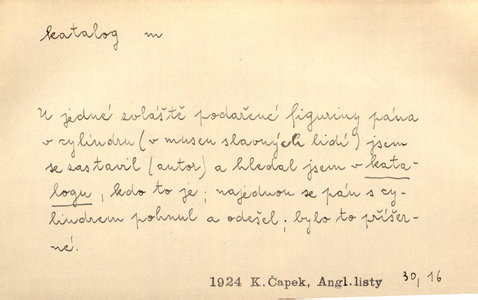 katalog m
U jedné zvláště podařené figuriny pána
v cylindru (v museu slavných lidí) jsem
se zastavil (autor) a hledal jsem v kata-
logu, kdo to je; najednou se pán s cy-
lindrem pohnul a odešel; bylo to příšer-
né.
1924 K. Čapek, Angl. listy 30, 16